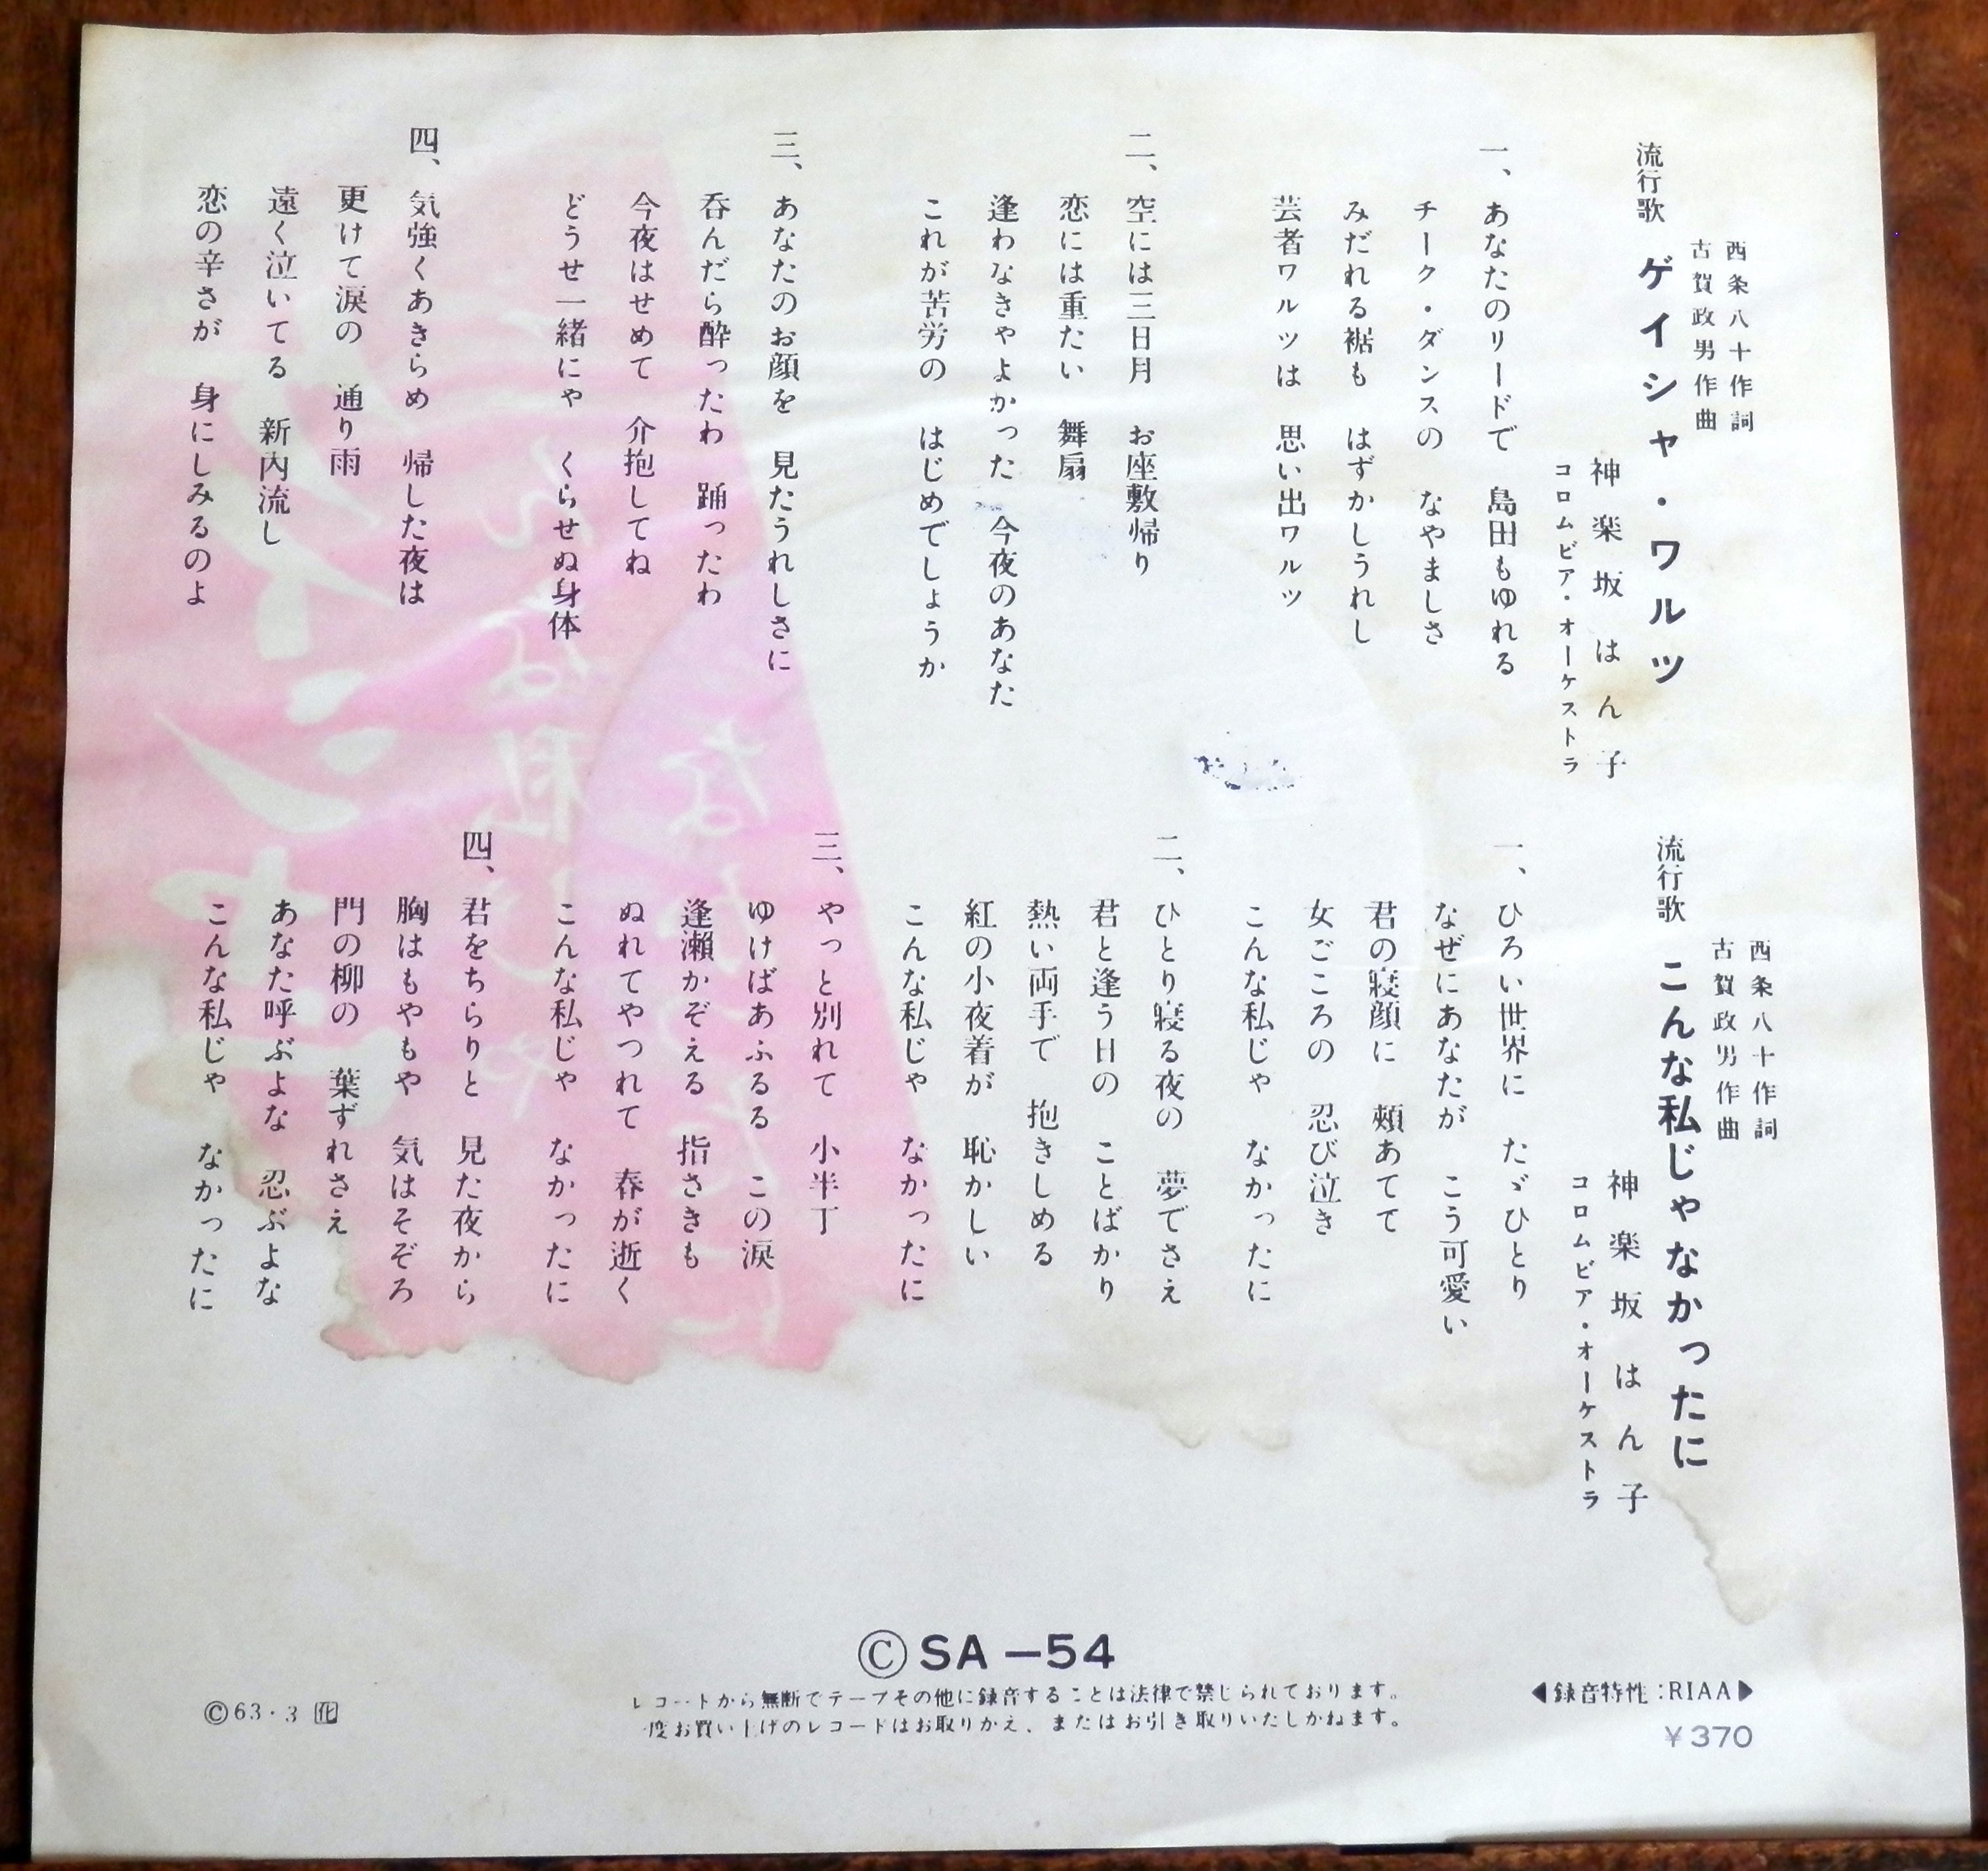 西条八十作詞
古賀政男作曲
流行歌 ゲイシャ・ワルツ
神楽坂はん子
コロムビア・オーケストラ
一、あなたのリードで 島田もゆれる
チーク・ダンスの なやましさ
みだれる裾も はずかしうれし
芸者ワルツは 思い出ワルツ
二、空には三日月 お座敷帰り
恋には重たい 舞扇
逢わなきゃよかった 今夜のあなた
これが苦労の はじめでしょうか
三、あなたのお顔を 見たうれしさに
呑んだら酔ったわ 踊ったわ
今夜はせめて 介抱してね
どうせ一緒にゃ くらせぬ身体
四、気強くあきらめ 帰した夜は
更けて涙の 通り雨
遠く泣いてる 新内流し
恋の辛さが 身にしみるのよ
西条八十作詞
古賀政男作曲
流行歌 こんな私じゃなかったに
神楽坂はん子
コロムビア・オーケストラ
一、ひろい世界に たゞひとり
なぜにあなたが こう可愛い
君の寝顔に 頬あてて
女ごころの 忍び泣き
こんな私じゃ なかったに
二、ひとり寝る夜の 夢でさえ
君と逢う日の ことばかり
熱い両手で 抱きしめる
紅の小夜着が 恥かしい
こんな私じゃ なかったに
三、やっと別れて 小半丁
ゆけばあふるる この涙
逢瀬かぞえる 指さきも
ぬれてやつれて 春が逝く
こんな私じゃ なかったに
四、君をちらりと 見た夜から
胸はもやもや 気はそぞろ
門の柳の 葉ずれさえ
あなた呼ぶよな 忍ぶよな
こんな私じゃ なかったに
Ⓒ SA－54
レコードから無断でテープその他に録音することは法律で禁じられております。
一度お買い上げのレコードはお取りかえ、またはお引き取りいたしかねます。
◀録音特性：RIAA▶
¥370
Ⓒ63・3